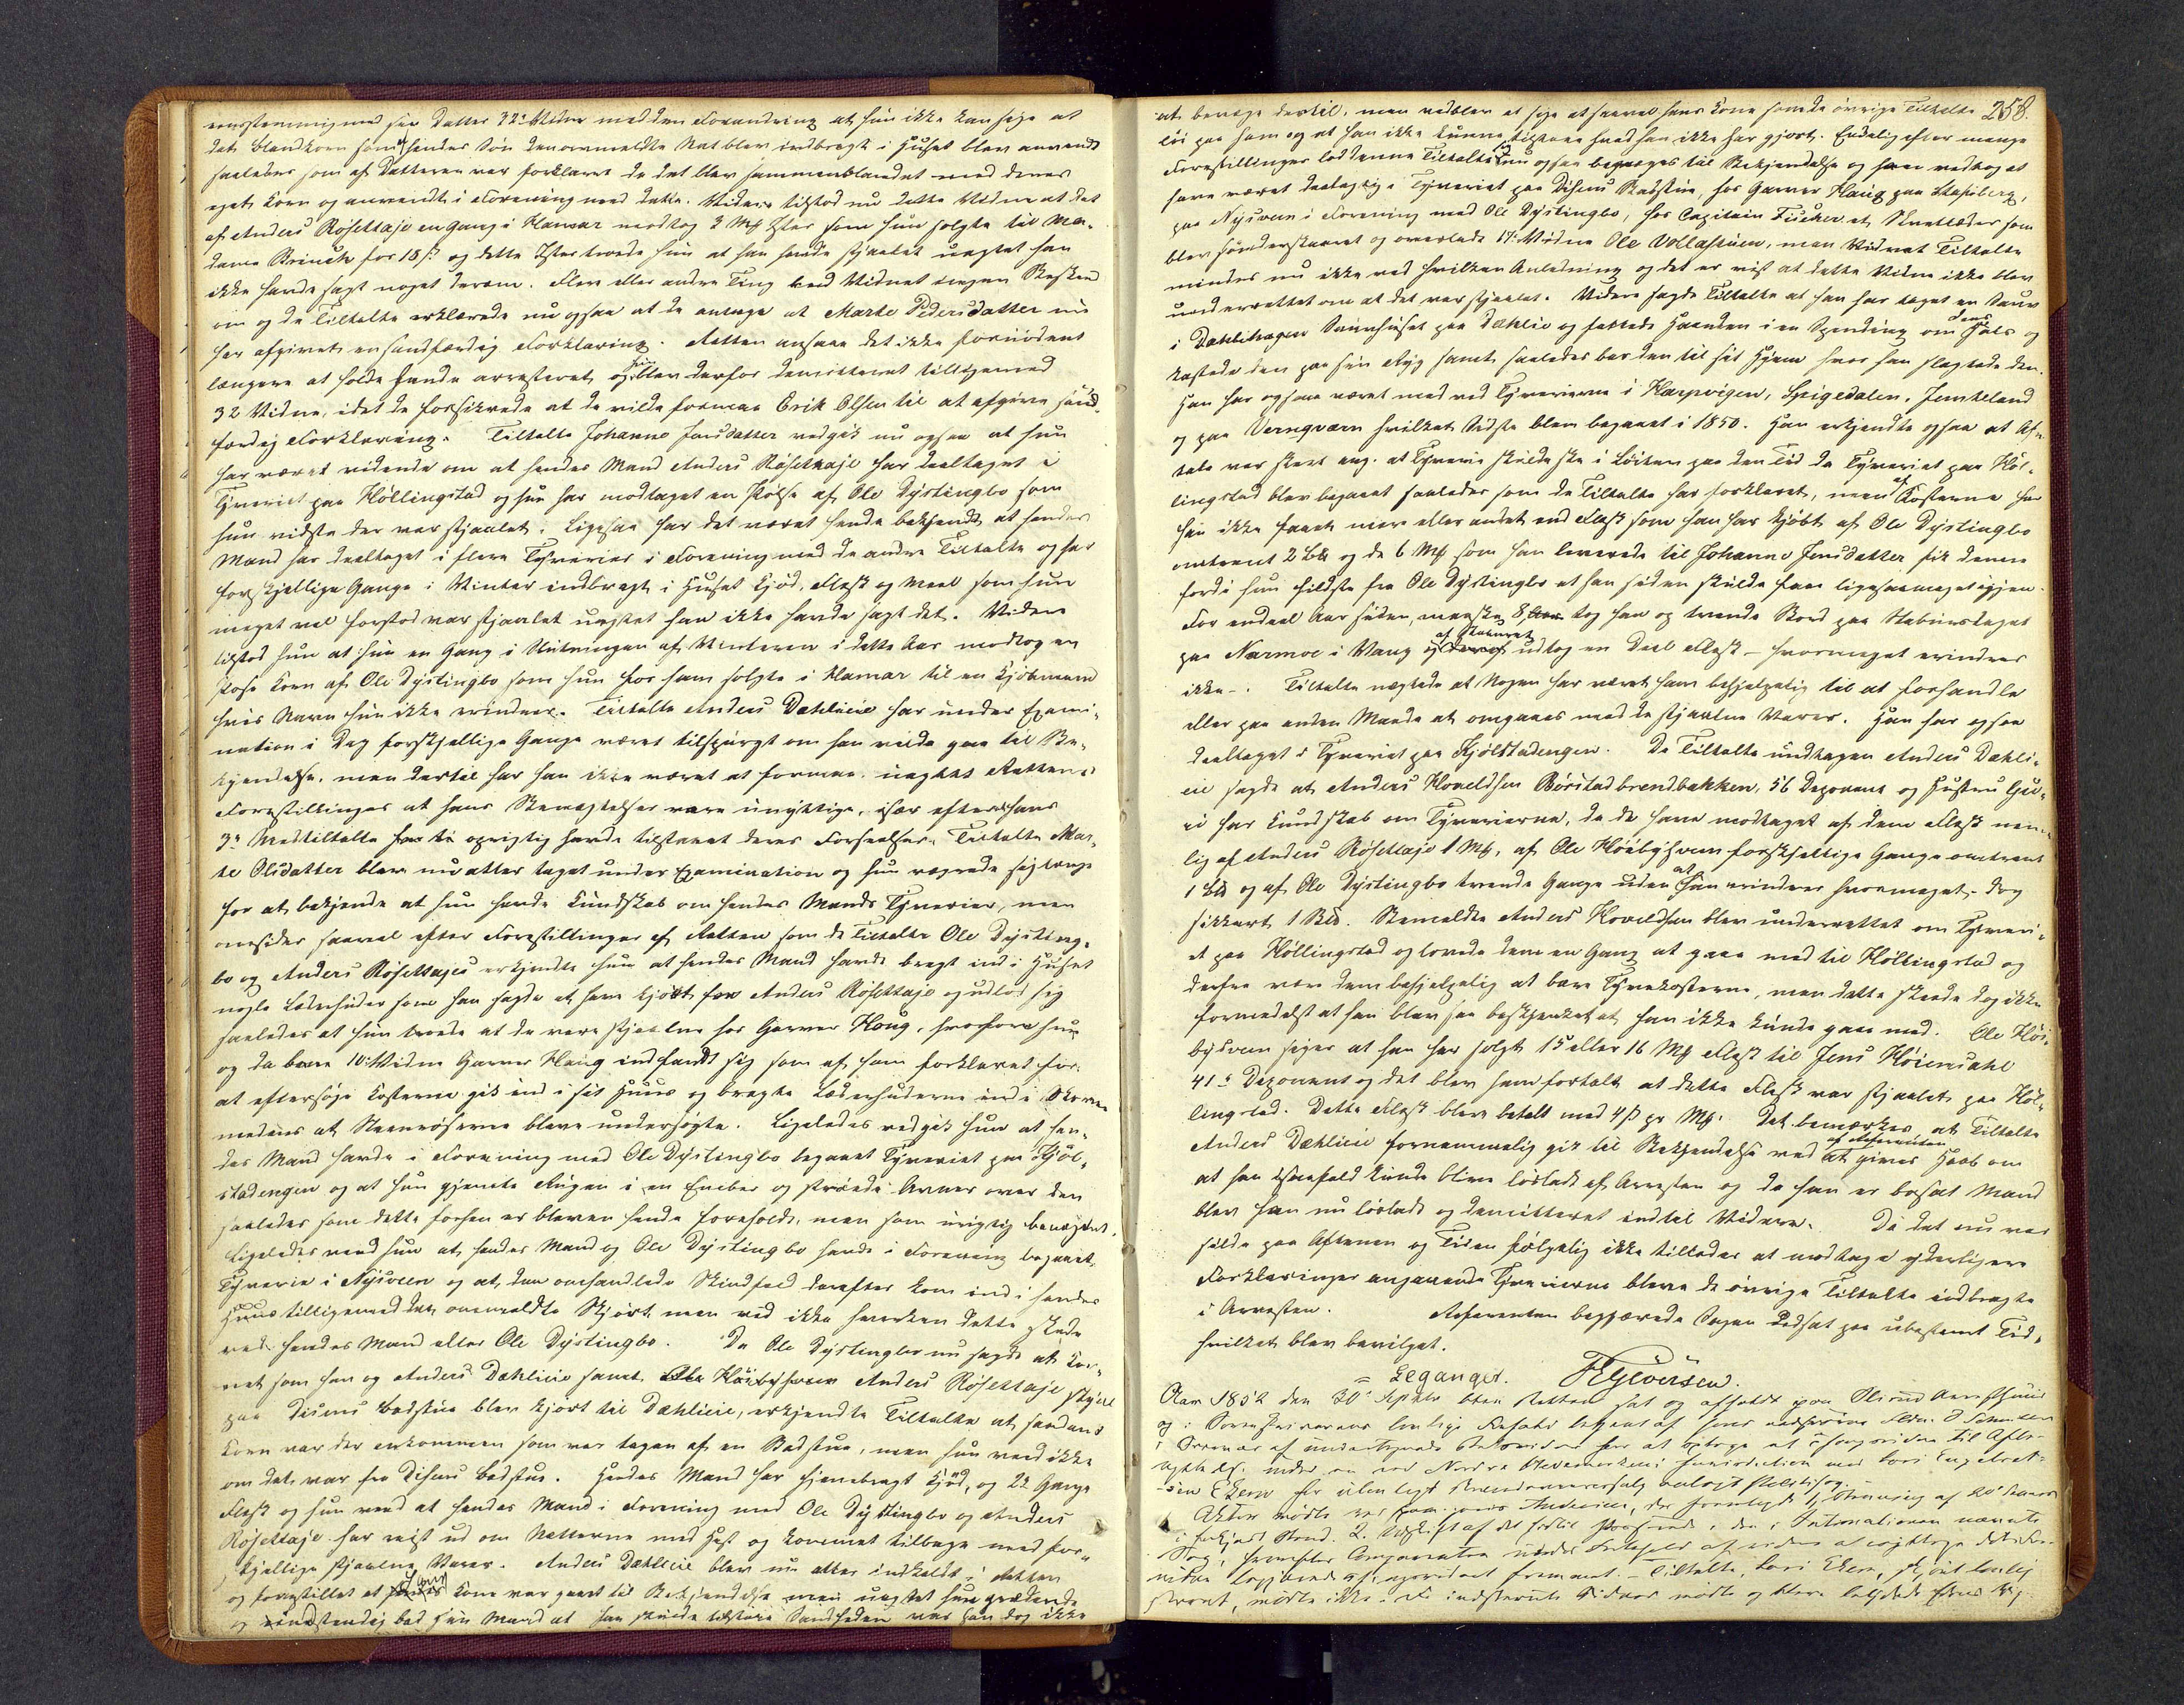 eensstemmig med sin Datter 32te Vidne med den Forandring at hun ikke kan sige at
det Blandkorn som hendes Søn Benovnmeldte Nat blev indbragt i Huset blev anvendt
saaledes som af Datteren var forklaret da det blev sammenblandet med deres
eget Korn og anvendt i Forening med dette. Videre tilstod nu dette Vidne at det
af Anders Røsettaje en Gang i Hamar modtog 2 Mk som hun solgte til Ma-
dame Brinch for 18 s og dette troede hun at han havde stjaalet uagtet han
ikke havde sagt noget derom. Flere eller andre Ting veed Vidnet ingen Besked
om og de Tiltalte erklærede nu ogsaa at de antage at Marte Pedersdatter nu
har afgivet en sandfærdig Forklaring. Retten ansaae det ikke fornødent
længere at holde hende arresteret og hun blev derfor demitteret tilligemed
32 Vidne, idet de forsikrede at de vilde formaae Erik Olsen til at afgive sand-
færdig Forklaring. Tiltalte Johanne Jensdatter vedgik nu ogsaa at hun
har været vidende om at hendes Mand Anders Røsettaje har deeltaget i
Tyveriet paa Høllingstad og hun har modtaget en Pølse af Ole Dystingbo som
hun vidste der var stjaalet. Ligesaa har det været hende bekjendt at hendes
Mand har deeltaget i flere Tyverier i Forening med de andre Tiltalte og har
forskjellige Gange i Vinter indbragt i Huset Kjød, Flesk og Meel som hun
meget vel forstod var stjaalet uagtet han ikke havde sagt det. Videre
tilstod hun at hun en Gang i Slutningen af Vinteren i dette Aar modtog en
Pose Korn af Ole Dystingbo som hun for ham solgte i Hamar til en Kjøbmand
hvis Navn hun ikke erindrer. Tiltalte Anders Dæhlieie har under Exami-
nation i Dag forskjellige Gange været tilspurgt om han vilde gaae til Be-
kjendelse, men dertil har han ikke været at formaae, uagtet Rettens
Forestillinger at hans Benægtelser vare unyttige, især efterat hans
3de Medtiltalte oprigtig havde tilstaaet deres Forseelser. Tiltalte Mar-
te Olsdatter blev nu atter taget under Examination og hun vægrede sig længe
for at bekjende at hun havde Kundskab om hendes Mands Tyverier, men
omsider saavel efter Forestillinger af Retten som de Tiltalte Ole Dysting-
bo og Anders Røsettajes erkjendte hun at hendes Mand havde bragt ind i Huset
nogle Læderhuder som han sagde at have kjøbt fra Anders Røsettaje og udlod sig
saaledes at hun troede at de vare stjaalne hos Garver Haug, hvorfore hun
og da 10de Vidne Garver Haug indfandt sig som af ham forklaret for
at eftersøge Kosterne gik ind i sit Huus og bragte Læderhuderne ind i
medens at Steenrøserne bleve undersøgte. Ligeledes vedgik hun at hen-
des Mand havde i Forening med Ole Dystingbo begaaet Tyveriet paa Kjøl-
stadengen og at hun gjemte Rugen i en Ember og strøede Avner over den
saaledes som dette forhen er bleven hende foreholdt, men som urigtig benægtet.
Ligeledes veed hun at hendes Mand og Ole Dystingbo havde i Forening begaaet
Tyverie i Nysveen og at den omhandlede Skindfeld derefter kom ind i hendes
Huus tilligemed det ommeldte Skjørt men ved ikke hvorken dette skede
ved hendes Mand eller Ole Dystingbo. Da Ole Dystingbo nu sagde at Kor-
net som han og Anders Dæhlieie samt Anders Røsettaje stjal
paa Disens Badstue blev kjørt til Dæhlieie, erkjendte Tiltalte at saadant
Korn var der ankommen som var tagen af en Badstue, men hun veed ikke
om det var fra Disens Badstue. Hendes Mand har hjembragt Kjød, og 2de Gange
Flesk og hun veed at hendes Mand i Forening med Ole Dystingbo og Anders
Røsettaje har reist ud om Nætterne med Hest og kommet tilbage med for-
skjellige stjaalne Varer. Anders Dæhlieie blev nu atter indkaldt i Retten
og forestillet at hans Kone var gaaet til Bekjendelse men uagtet hun grædende
og indstændig bad sin Mand at han skulde tilstaae Sandheden var han dog ikke
258.
at bevæge dertil, men vedblev at sige at saavel hans Kone som de øvrige Tiltalte
løi paa ham og at han ikke kunne tilstaae hvad han ikke har gjort. Endelig efter mange
Forestillinger lod denne Tiltalte sig nu ogsaa bevæges til Bekjendelse og han vedtog at
have været deelagtig i Tyveriet paa Disens Badstue, hos Garver Haug paa Stafsberg,
paa Nysveen i Forening med Ole Dystingbo, hos Capitain Fischer et som
blev sønderskaaret og overladt 17de Vidne Ole Vollastuen, men Vidnet Tiltalte
mindes nu ikke ved hvilken Anledning og det er vist at dette Vidne ikke blev
underrettet om at det var stjaalet. Videre sagde Tiltalte at han har taget en Sau
i Dæhlihagen Sauehuset paa Dæhlie og fæstede Haanden i en Spending om dens Hals og
kastede den paa sin Ryg samt saaledes bar den til sit Hjem hvor han slagtede den.
Han har ogsaa været med ved Tyverierne i Harpvigen, Spigedalen, Jemteland
og paa Vernqværn hvilket sidste blev begaaet i 1850. Han erkjendte ogsaa at Af-
tale var skeet ang. at Tyverie skulde ske i Løiten paa den Tid da Tyveriet paa Høl-
lingstad blev begaaet saaledes som de Tiltalte har forklaret, men af Kosterne har
han ikke faaet mere eller andet end Flesk som han har kjøbt af Ole Dystingbo
omtrent 2 Bd og de 6 Mk som han leverede til Johanne Jensdatter fik denne
fordi hun hilste fra Ole Dystingbo at han siden skulde faae ligesaameget igjen.
For endeel Aar siden, maaske 8, tog han op tvende Bord paa Stabburstaget
paa Narmoe i Vang og af Staburet udtog en Deel Flesk - hvormeget erindres
ikke -. Tiltalte nægtede at Nogen har været ham behjelpelig til at forhandle
eller paa anden Maade at omgaaes med de stjaalne Varer. Han har ogsaa
deeltaget i Tyveriet paa Kjølstadengen. De Tiltalte undtagen Anders Dæhli-
eie sagde at Anders Hoveldsen Børstadbrendbakken, 56 Deponent og Hustru Gu-
ri har Kundskab om Tyverierne, da de have modtaget af dem Flesk nem-
lig af Anders Røsettaje 1 Mk, af Ole Høibysveen forskjellige Gange omtrent
1 Bd og af Ole Dystingbo tvende Gange uden at han erindrer hvormeget, dog
sikkert 1 Bd. Bemeldte Anders Hoveldsen blev underrettet om Tyveri-
et paa Høllingstad og lovede dem en Gang at gaae med til Høllingstad og
derfra være dem behjelpelig at bære Tyvekosterne, men dette skeede dog ikke
formedelst at han blev saa beskjænket at han ikke kunde gaae med. Ole Høi-
bysveen siger at han har solgt 15 eller 16 Mk Flesk til Jens Høiensahl
41de Deponent og det blev ham fortalt at dette Flesk var stjaalet paa Høl-
lingstad. Dette Flesk blev betalt med 4 s pr Mk. Det bemærkes at Tiltalte
Anders Dæhlieie fornemmelig gik til Bekjendelse ved at af Referenten gives Haab om
at han isaafald kunde blive løsladt af Arresten og da han er bosat Mand
blev han nu løsladt og demitteret indtil Videre. Da det nu var
silde paa Aftenen og Tiden følgelig ikke tillader at modtage yderligere
Forklaringer angaaende Tyverierne bleve de øvrige Tiltalte indbragte
i Arresten. Referenten begjærede Sagen udsat paa ubestemt Tid,
hvilket blev bevilget.
Leganger. Syversen.
Aar 1852 den 30te Septbr blev Retten sat og afholdt paa
og i Sorenskriverens lovlige Forfald betjent af hans
i Overvær af undertegnede for at optage et Thingsvidne til Afbe-
nyttelse under en ved Nordre Hedemarkens Jurisdiction mod Lars Engebret-
sen Ekern for ulovligt anlagt Politisag.
Aktor mødte ved der fremlagde 1, Stævning af 20de
i forkjynt Stand. 2. Udskrift af det hidtil Passerede i den i Intimationen nævnte
Sag, hvorefter Comparenten under
begjærede Thingsvidnet fremmet. - Tiltalte, Lars Ekern, skjønt lovlig
stevnt, mødte ikke. De indstevnte Vidner mødte og bleve betydede Eed